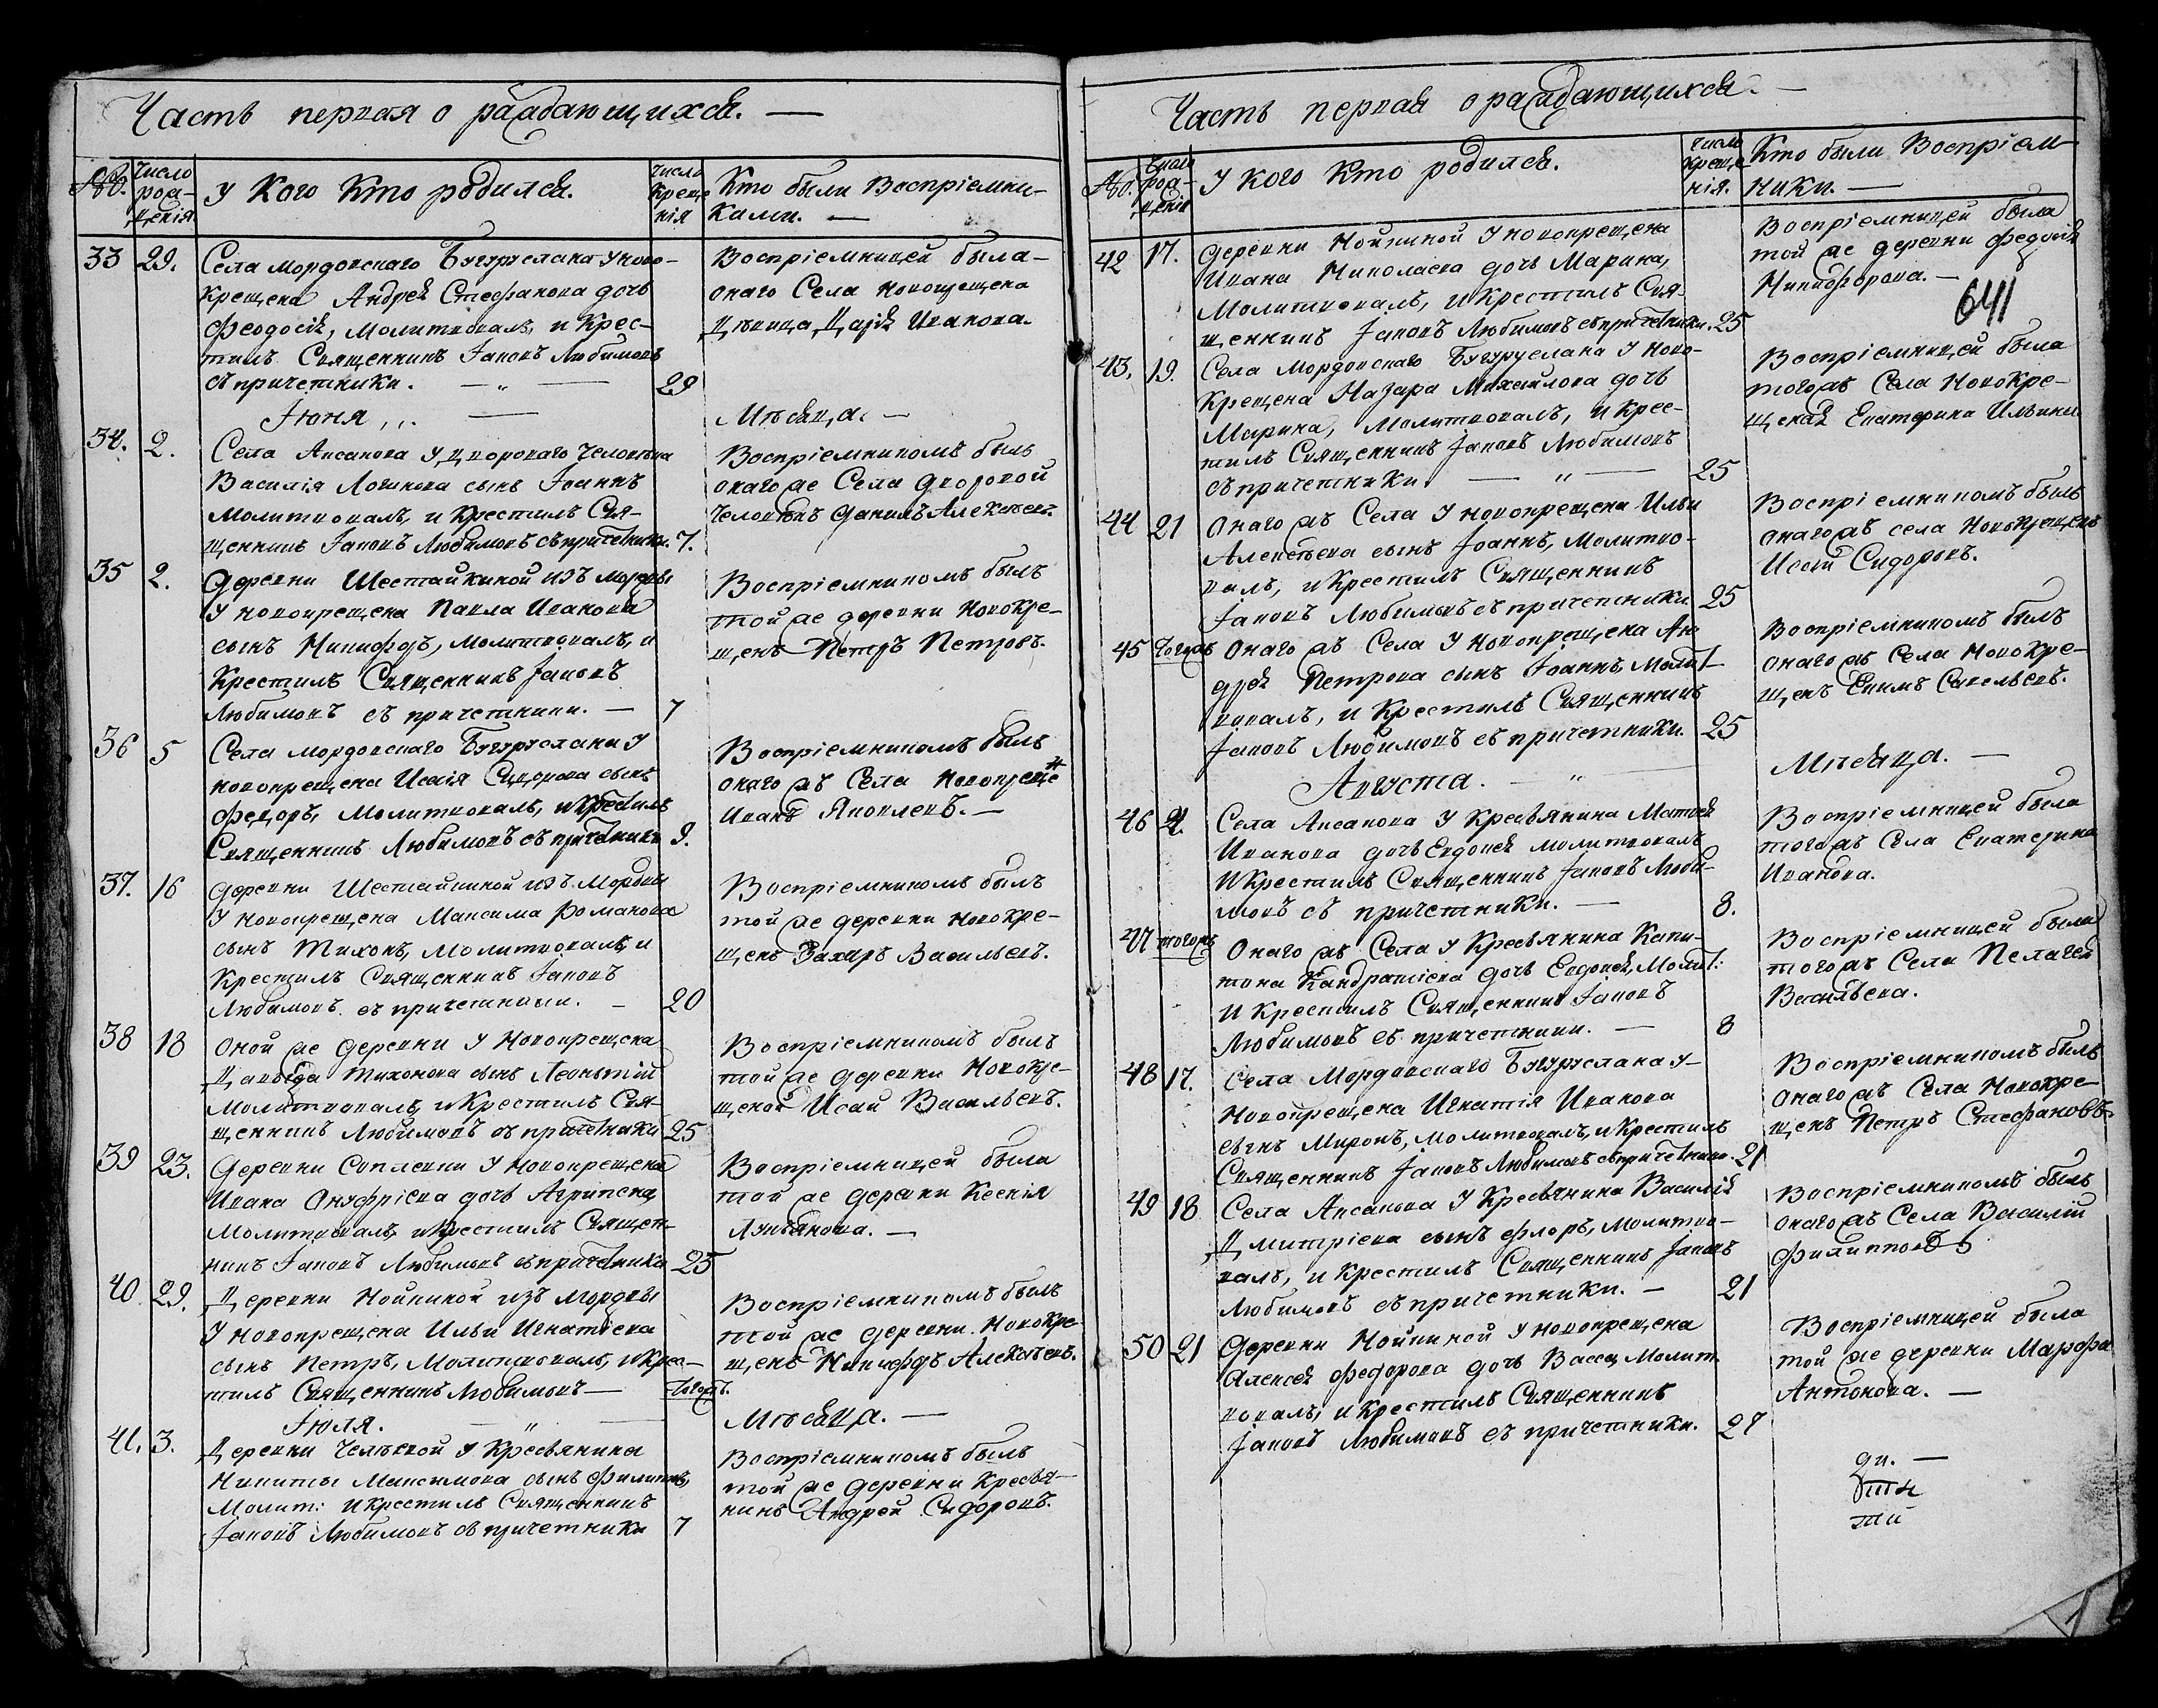 Часть первая о раждающихся. —
№№.
Число рож-
денія
У Кого Кто родился.
Число
Креще
нія
Кто были Воспріемни-
ками. —
33
29.
Села Мордовскаго Бугуруслана у ново-
крещена Андрея Стефанова дочь
Феодосія, молитвовалъ, и Крес-
тилъ Священникъ Іаковъ Любимовъ
съ причетники. — „ —
29
Воспріемницей была
онаго Села новокрещена
дѣвица Дарія Иванова.
Іюня „.
Мѣсяца. —
34.
2.
Села Аксакова у двороваго человѣка
Василія Логинова сынъ Іоаннъ
молитвовалъ, и Крестилъ Свя-
щенникъ Іаковъ Любимовъ съ причетники.
7.
Воспріемникомъ былъ
онаго же Села дворовой
человѣкъ Данилъ Алексѣевъ.
35
2.
Деревни Шестайкиной изъ мордвы
у новокрещена Павла Иванова
сынъ Никифоръ, молитвовалъ, и
Крестилъ Священникъ Іаковъ
Любимовъ съ причетники. —
7
Воспріемникомъ былъ
той же деревни Новокре-
щенъ Петръ Петровъ.
36
5
Села Мордовскаго Бугуруслана у
новокрещена Исаія Сидорова сынъ
Федоръ, молитвовалъ, и Крестилъ
Священникъ Любимовъ съ причетники
9.
Воспріемникомъ былъ
онаго жъ Села Новокреще
Иванъ Яковлевъ. —
37.
16
Деревни Шестайкиной изъ Мордвы
у новокрещена Максима Романова
сынъ Тихонъ, молитвовалъ, и
Крестилъ Священникъ Іаковъ
Любимовъ съ причетники. —
20
Воспріемникомъ былъ
той же деревни новокре-
щенъ Захаръ Васильевъ.
38
18
Оной же деревни у Новокрещена
Давыда Тихонова сынъ Леонтій
молитвовалъ, и Крестилъ Свя-
щенникъ Любимовъ съ причетники
25
Воспріемникомъ былъ
той же деревни Новокре-
щеной Исай Васильевъ.
39
23.
Деревни Соплевки у новокрещена
Ивана Онуфріева дочь Агрипена
молитвовалъ, и Крестилъ Священ-
никъ Іаковъ Любимовъ съ причетники
25
Воспріемницей была
той же деревни Ксенія
Лукьянова. —
40
29.
Деревни Нойкиной изъ Мордвы
у новокрещена Ильи Игнатіева
сынъ Петръ, молитвовалъ, и Крес-
тилъ Священникъ Любимовъ —
тогожъ.
Воспріемникомъ былъ
той же деревни Новокре
щенъ Никифоръ Алексѣевъ.
Іюля. — „ —
Мѣсяца. —
41.
3.
Деревни у Кресьянина
Никиты Максимова сынъ Филиппъ,
Молит: и Крестилъ Священникъ
Іаковъ Любимовъ съ причетники
7
Воспріемникомъ былъ
той же деревни Кресья-
нинъ Андрей Сидоровъ.
Часть первая о раждающихся. —
№№.
Число
рож-
денія
У кого Кто родился.
Число
Креще
нія.
Кто были Воспріем-
ники. —
641
42
17.
Деревни Нойкиной у новокрещена
Ивана Николаева дочь Марина,
Молитвовалъ, и Крестилъ Свя-
щенникъ Іаковъ Любимовъ съ причетники.
25
Воспріемницей была
той же деревни Федосія
Никифорова. —
43.
19.
Села Мордовскаго Бугуруслана у Ново-
крещена Назара Михайлова дочь
Марина, Молитвовалъ, и Крес-
тилъ Священникъ Іаковъ Любимовъ
съ причетники. — „ —
25
Воспріемницей была
тогожъ Села Новокре-
щеная Екатерина Ильина
44
21
Онаго жъ Села у новокрещена Ильи
Алексѣева сынъ Іоаннъ, Молитво-
валъ, и Крестилъ Священникъ
Іаковъ Любимовъ съ причетники
25
Воспріемникомъ былъ
онаго жъ села Новокрещенъ
Исай Сидоровъ.
45
тогожъ
Онаго жъ Села у Новокрещена Ан
дрея Петрова сынъ Іоаннъ, Молит-
вовалъ, и Крестилъ Священникъ
Іаковъ Любимовъ съ причетники.
25
Воспріемникомъ былъ
онаго жъ Села Новокре-
щенъ Екимъ Савельевъ.
Августа. — „ —
Мѣсяца. —
46
4.
Села Аксакова у Кресьянина Матвея
Иванова дочь Евдокія молитвовалъ
и Крестилъ Священникъ Іаковъ Люби-
мовъ съ причетники. —
8.
Воспріемницей была
тогожъ Села Екатерина
Иванова.
47
тогожъ
Онаго жъ Села у Кресьянина Капи-
тона Кандратіева дочь Евдокія, Молит:
и Крестилъ Священникъ Іаковъ
Любимовъ съ причетники. —
8
Воспріемницей была
тогожъ Села Пелагея
Васильева.
48
17.
Села Мордовскаго Бугуруслана у-
Новокрещена Игнатія Иванова
сынъ Миронъ, молитвовалъ, и Крестилъ
Священникъ Іаковъ Любимовъ съ причетники.
21
Воспріемникомъ былъ
онаго жъ Села Новокре-
щенъ Петръ Стефановъ.
49
18
Села Аксакова у Кресьянина Василія
Дмитріева сынъ Флоръ, Молитво-
валъ, и Крестилъ Священникъ Іаковъ
Любимовъ съ причетники. —
21
Воспріемникомъ былъ
онаго жъ Села Василій
Филипповъ
50
21
Деревни Нойкиной у новокрещена
Алексея Федорова дочь Васса, Молит-
вовалъ, и Крестилъ Священникъ
Іаковъ Любимовъ съ причетники.
27
Воспріемницей была
той же деревни Марфа
Антонова. —